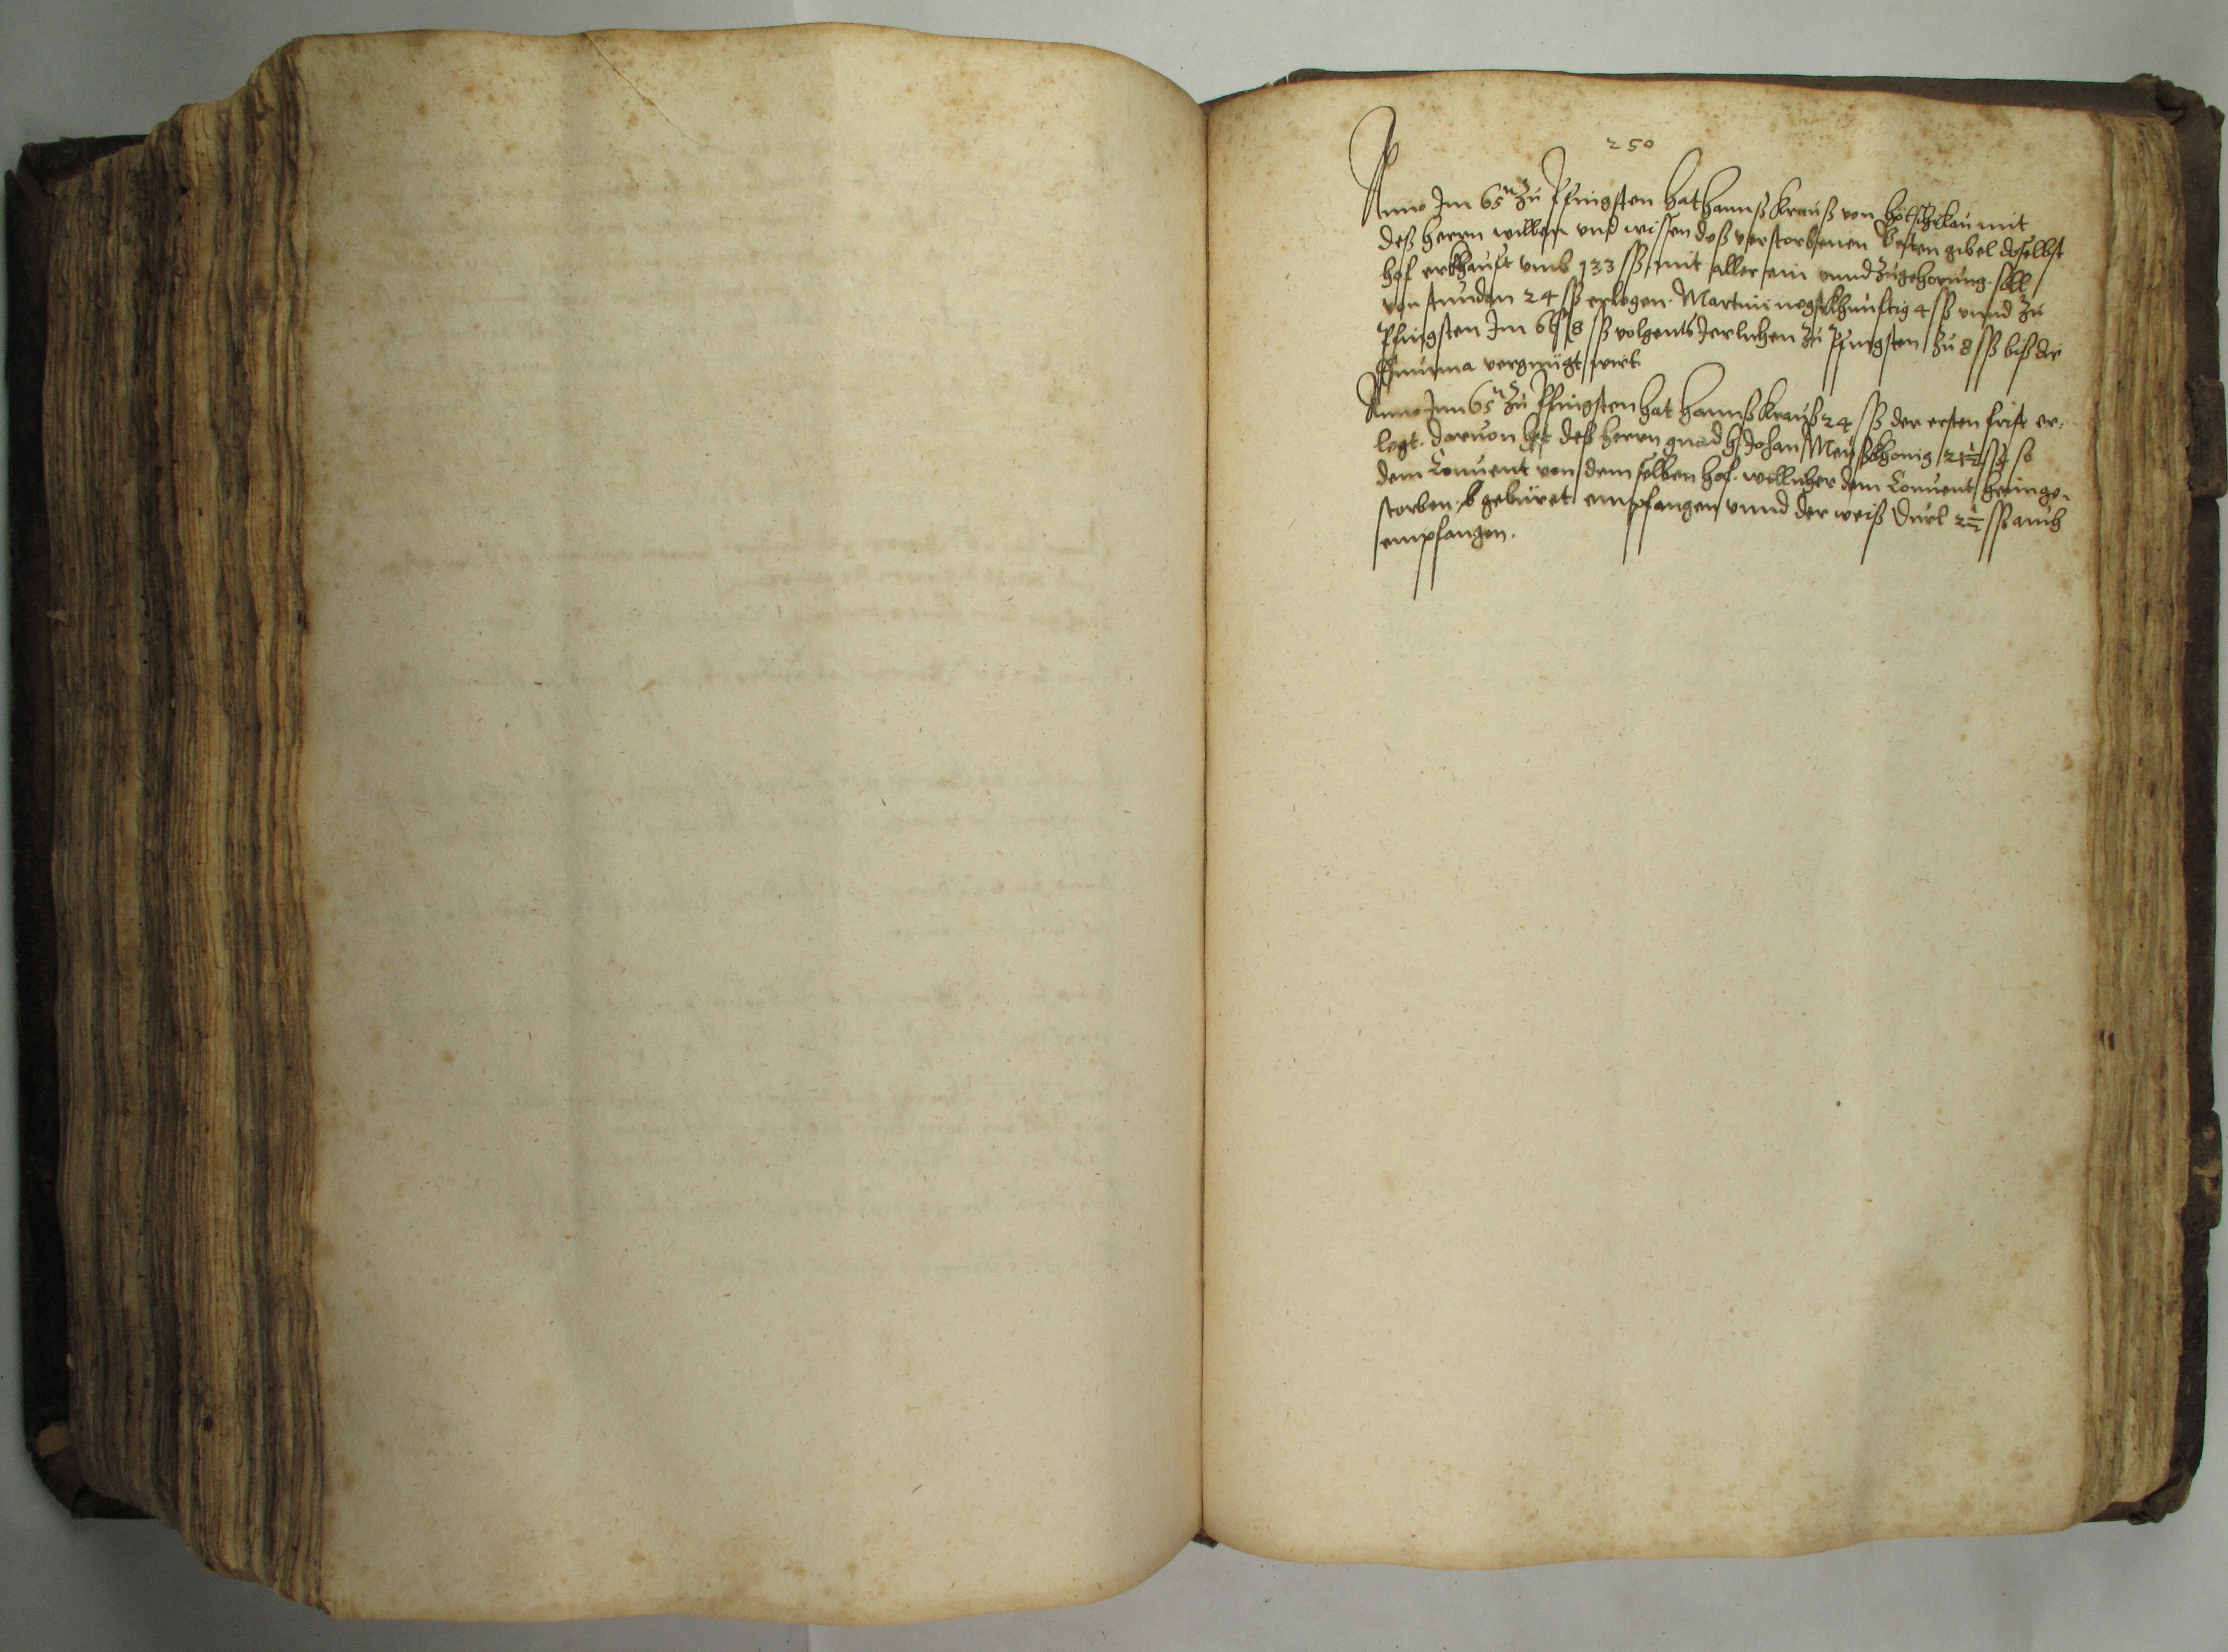 250
Anno Im 65n Zu Pfingsten hat Hannß Krauß von mit
deß herrn willen vnd wissen deß verstorbenen Veiten gibel doselbst
hof erkhauft vmb 133 ß mit aller ein vnnd Zugehorung. soll
von stundan 24 ß erlegen. Martini negstkhunftig 4 ß vnnd Zu
Pfingsten Im 66 8 ß volgents Jerlichen Zu Pfingsten Zu 8 ß biß die
Summa vergnügt wirt.
Anno Im 65n Zu Pfingsten hat Hannß Krauß 24 ß der ersten frist er-
legt. daruon hat deß herrn gnad h Johan 21½ ß so
dem Conuent von dem selben hof. wellicher dem Conuent heimge-
storben. gebüret empfangen vnnd der weiß 2½ ß auch
empfangen.